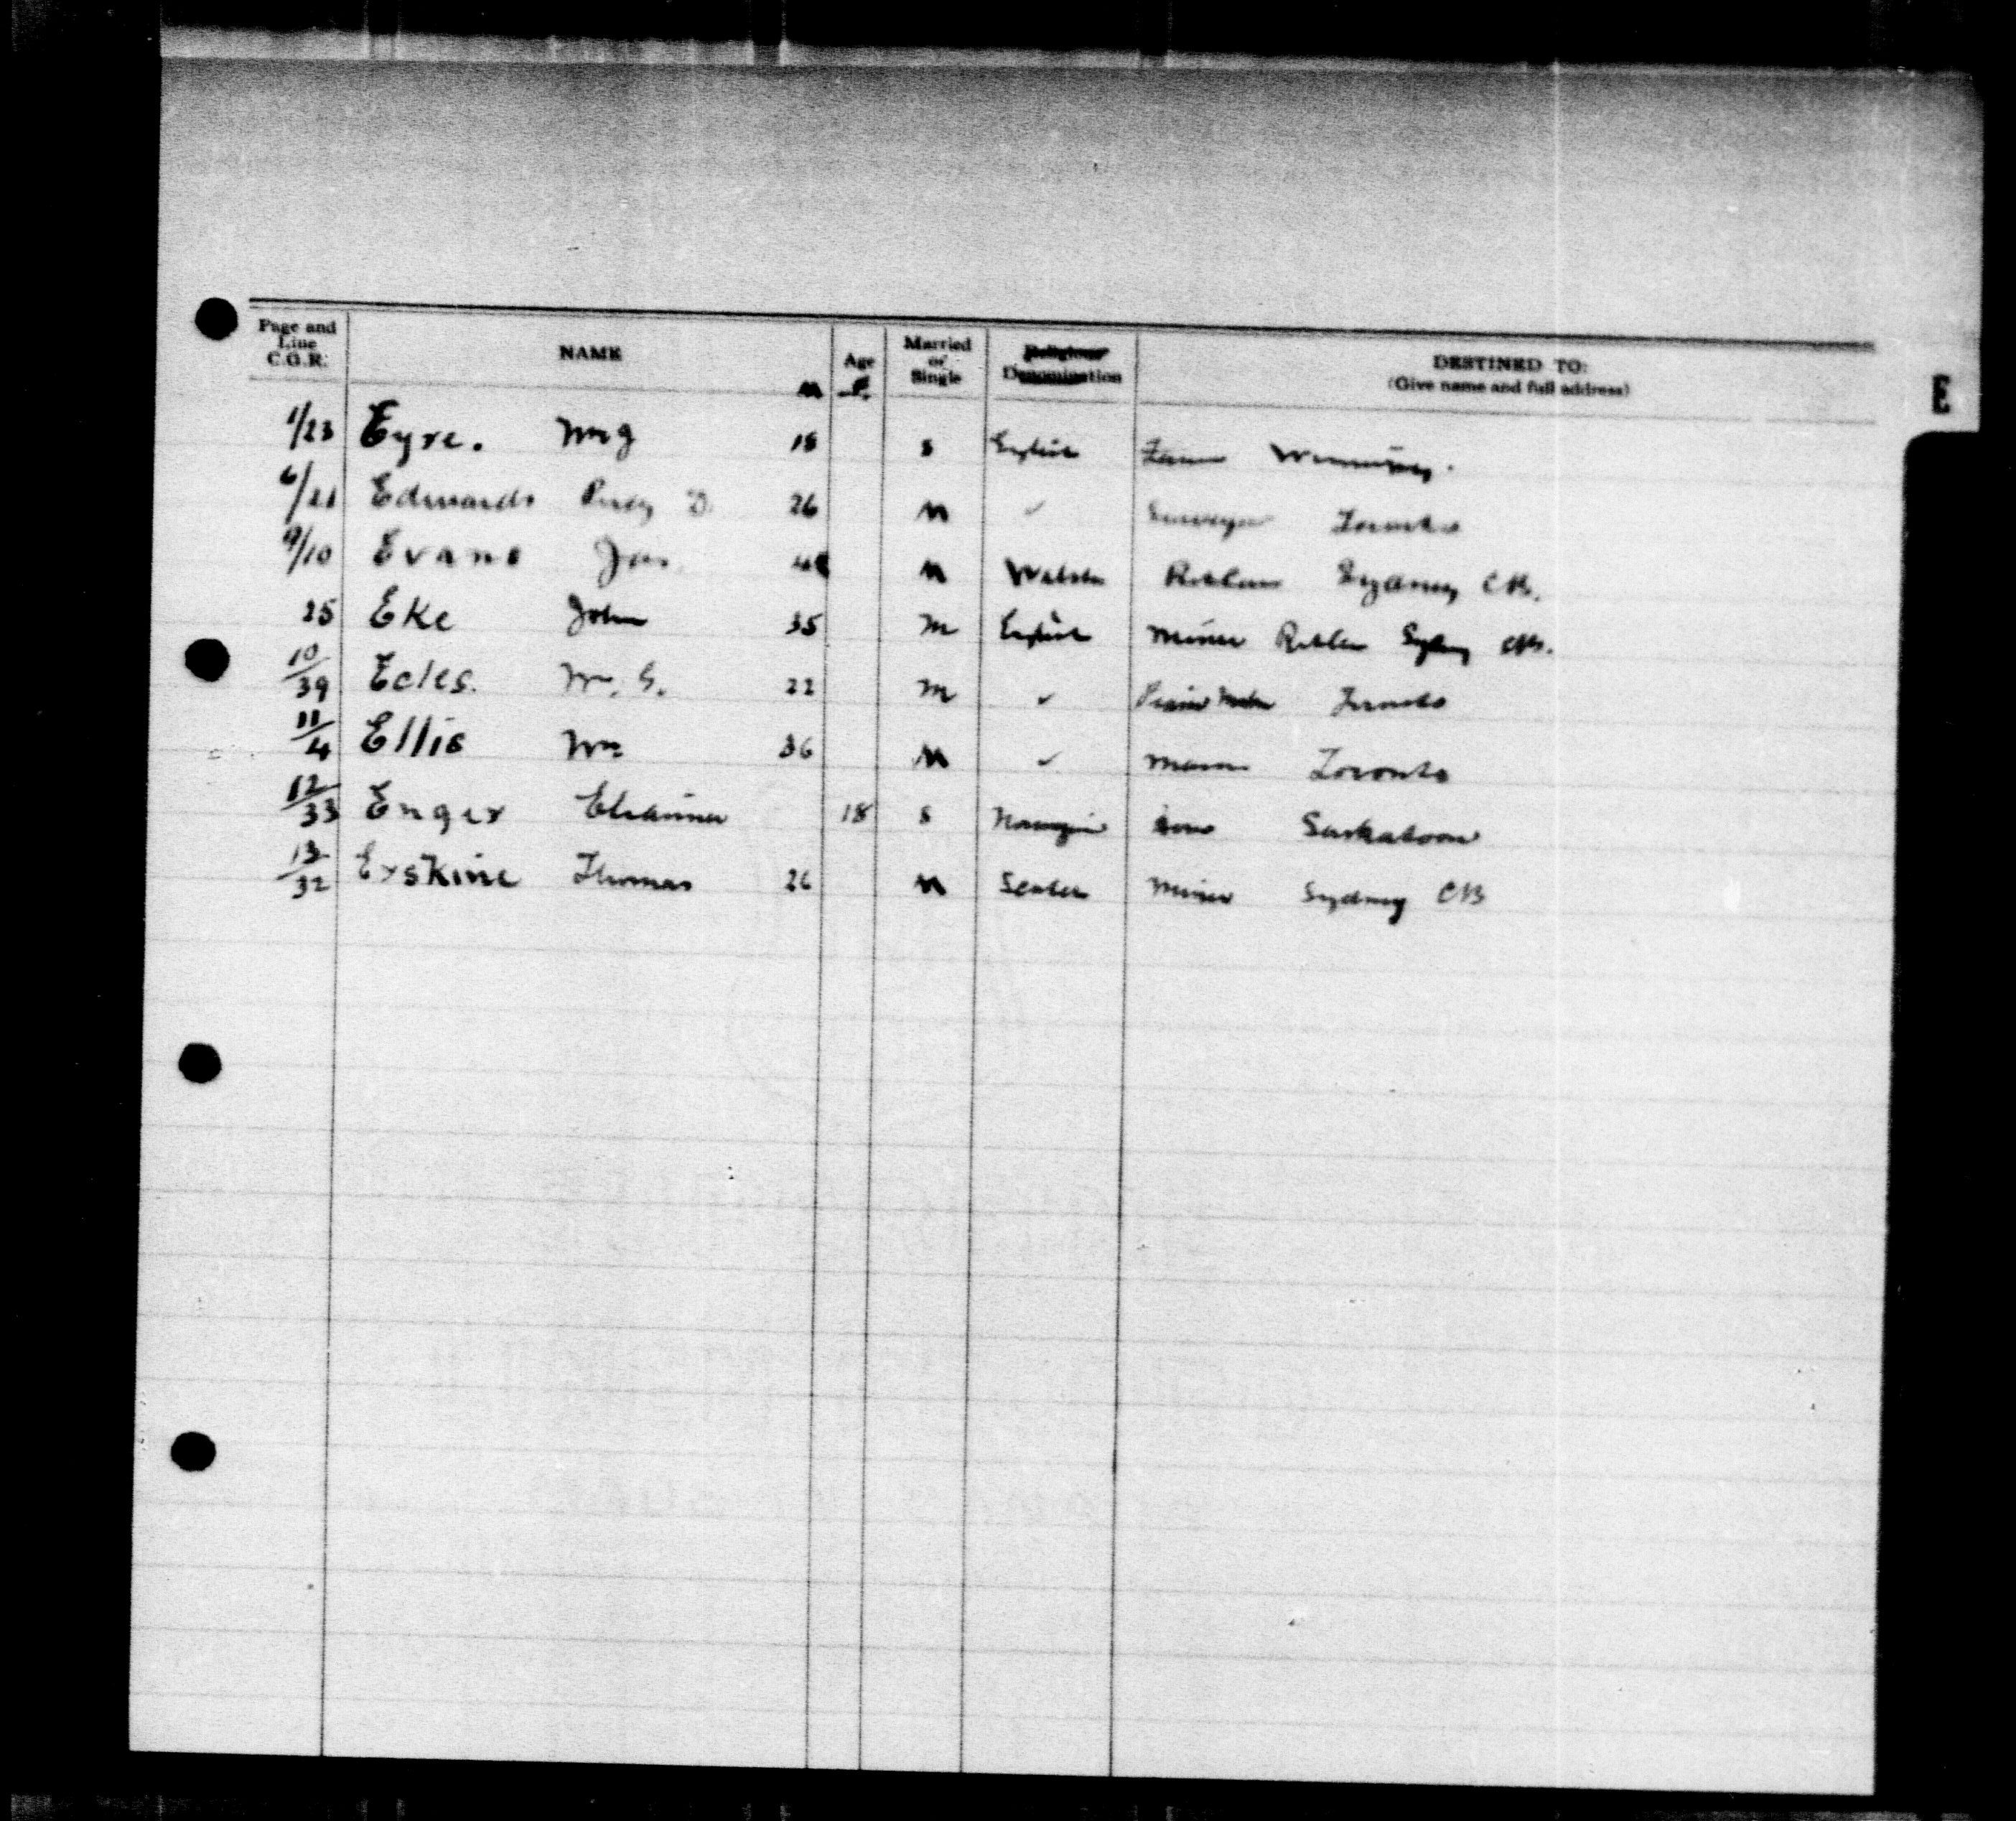 Page and Line C.G.R. NAME Age Married or Single Religious Denomination DESTINED TO:
(Give name and full address)
M F.
E
1/23 Eyre. Wm J 18 S English Farm Winnipeg.
6/21 Edwards Percy D. 26 M ✓ Surveyor Toronto
9/10 Evans Jas 48 M Welsh Sydney CB.
25 Eke John 35 M English Miner Sydney CB.
10/39 Ecles. Wm. G. 22 M ✓ Toronto
11/4 Ellis Wm 36 M ✓ Mason Toronto
12/33 Enger 18 S Norwegian Saskatoon
13/32 Erskine Thomas 26 M Scotch Miner Sydney CB